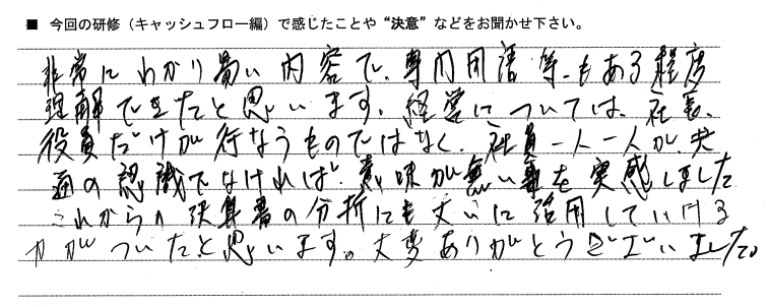 ■ 今回の研修（キャッシュフロー編）で感じたことや“決意”などをお聞かせ下さい。
非常にわかり易い内容で、専門用語等もある程度
理解できたと思います。経営については、社長、
役員だけが行なうものではなく、社員一人一人が、共
通の認識でなければ、意味が無い事を実感しました
これからの決算書の分析にも大いに活用していける
力がついたと思います。大変ありがとうございました。